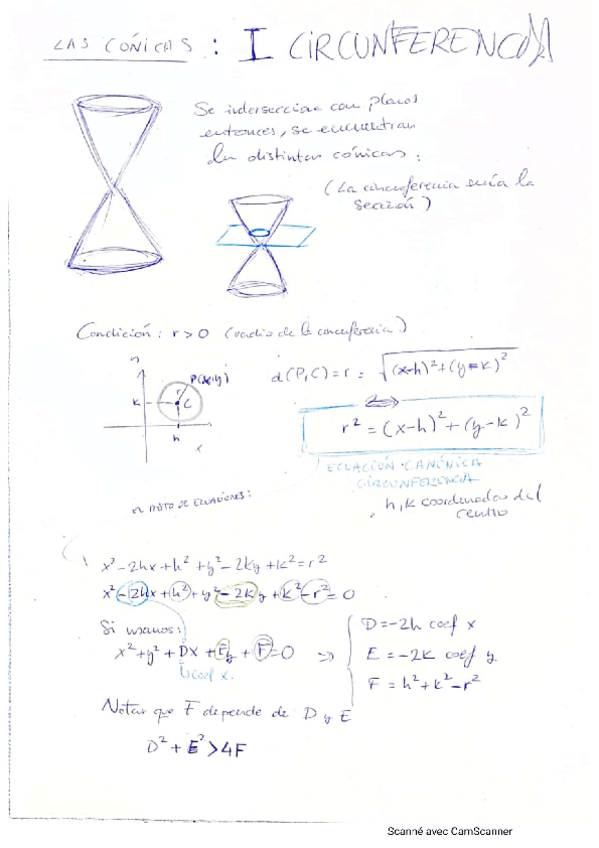 LAS CÓNICAS : I CIRCUNFERENCIA
Se interseccian con planos
entonces, se encuentran
las distintas cónicas :
(La circunferencia sería la
sección)
Condición : r > 0 (radio de la circunferencia)
P(x,y)
K
C
h
x
d(P,C) = r = √(x-h)²+(y-k)²
r² = (x-h)² + (y-k)²
ECUACIÓN CANÓNICA
CIRCUNFERENCIA
, h, k coordenadas del
centro
DE ECUACIONES :
x² - 2hx + h² + y² - 2ky + k² = r²
x² - 2hx + h² + y² - 2ky + k² - r² = 0
Si usamos :
x² + y² + Dx + Ey + F = 0 ⇒
coef x.
D = -2h coef x
E = -2k coef y
F = h² + k² - r²
Notar que F depende de D y E
D² + E² > 4F
Scanné avec CamScanner